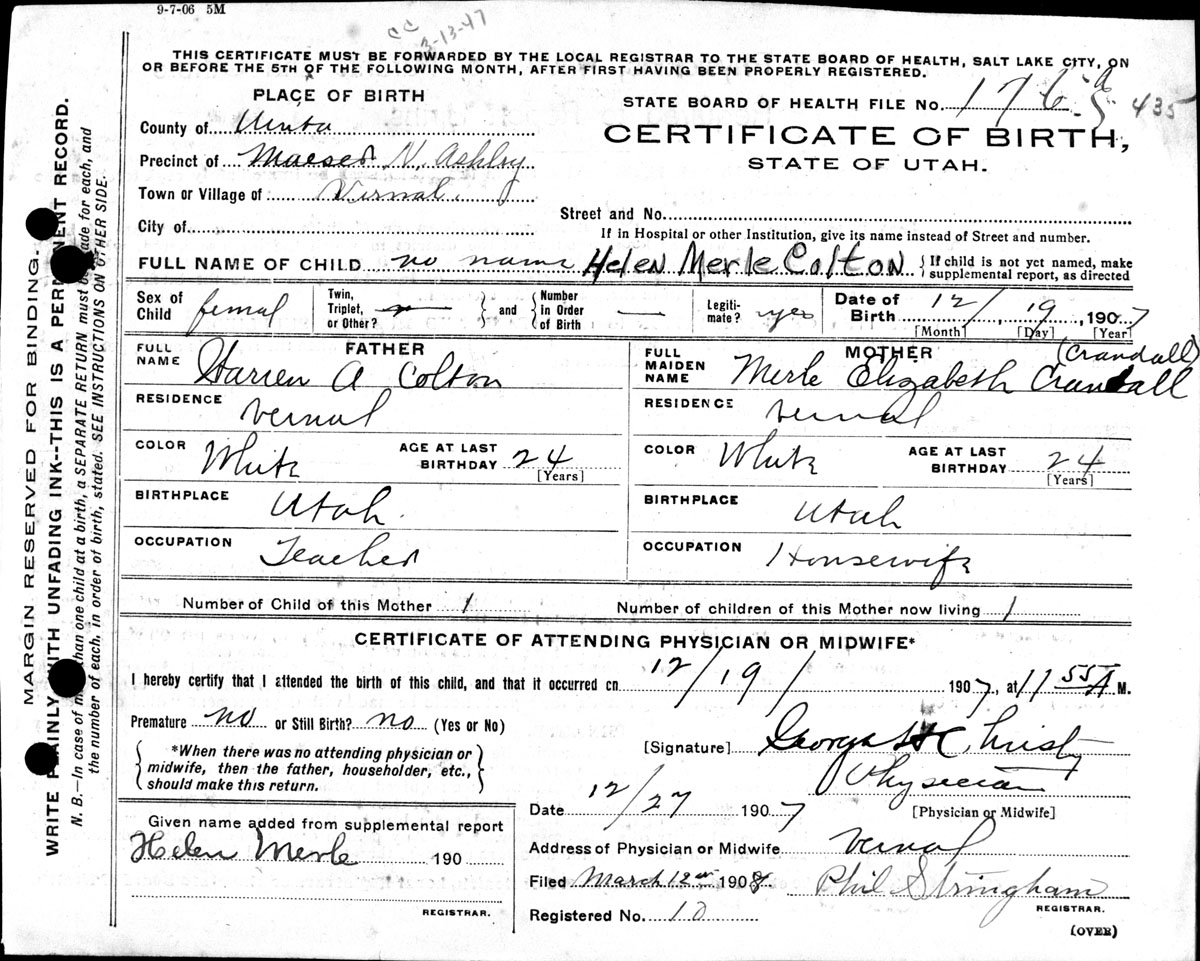 9-7-06 5M
CC
3-13-47
THIS CERTIFICATE MUST BE FORWARDED BY THE LOCAL REGISTRAR TO THE STATE BOARD OF HEALTH, SALT LAKE CITY, ON
OR BEFORE THE 5TH OF THE FOLLOWING MONTH, AFTER FIRST HAVING BEEN PROPERLY REGISTERED.
PLACE OF BIRTH
STATE BOARD OF HEALTH FILE No. 176 435
County of Uinta
CERTIFICATE OF BIRTH,
STATE OF UTAH.
Precinct of Maeser N. Ashley
Town or Village of Vernal
Street and No.
City of
If in Hospital or other Institution, give its name instead of Street and number.
FULL NAME OF CHILD no name Helen Merle Colton { If child is not yet named, make supplemental report, as directed
Sex of Child femal
Twin, Triplet, or Other? } and { Number in Order of Birth —
Legiti- mate? yes
Date of Birth 12 / 19, 1907
[Month] [Day] [Year]
FATHER
FULL NAME A Colton
RESIDENCE Vernal
COLOR White AGE AT LAST BIRTHDAY 24
[Years]
BIRTHPLACE Utah
OCCUPATION Teacher
MOTHER (Crandall)
FULL MAIDEN NAME Merle Elizabeth Crandall
RESIDENCE Vernal
COLOR White AGE AT LAST BIRTHDAY 24
[Years]
BIRTHPLACE Utah
OCCUPATION Housewife
Number of Child of this Mother 1 Number of children of this Mother now living 1
CERTIFICATE OF ATTENDING PHYSICIAN OR MIDWIFE*
I hereby certify that I attended the birth of this child, and that it occurred on 12/19/ 1907, at 11 55 A M.
Premature no or Still Birth? no (Yes or No)
{ *When there was no attending physician or
midwife, then the father, householder, etc.,
should make this return. }
[Signature] George H C
Physician
[Physician or Midwife]
Date 12/27 1907
Address of Physician or Midwife Vernal
Given name added from supplemental report
Helen Merle 190
REGISTRAR.
Filed March 12 1908 Phil Stringham
REGISTRAR.
Registered No. 10
(OVER)
MARGIN RESERVED FOR BINDING.
WRITE PLAINLY WITH UNFADING INK--THIS IS A PERMANENT RECORD.
N. B.—In case of more than one child at a birth, a SEPARATE RETURN must be made for each, and
the number of each, in order of birth, stated. SEE INSTRUCTIONS ON OTHER SIDE.